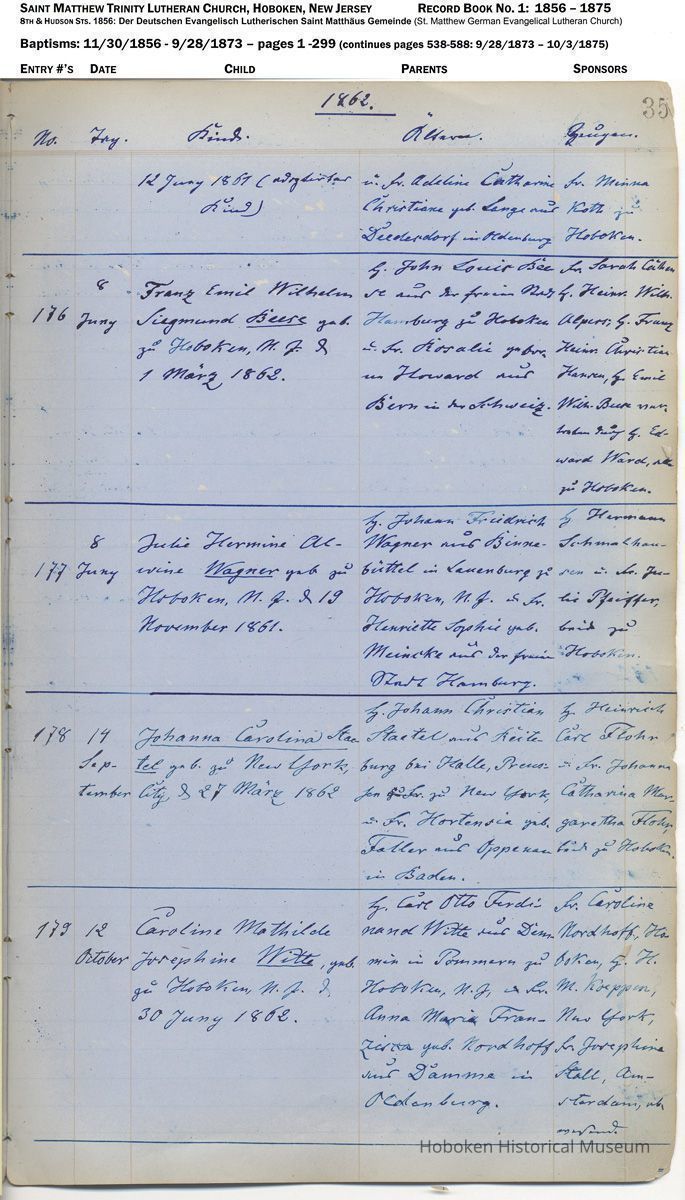 SAINT MATTHEW TRINITY LUTHERAN CHURCH, HOBOKEN, NEW JERSEY RECORD BOOK NO. 1: 1856 – 1875
8TH & HUDSON STS. 1856: Der Deutschen Evangelisch Lutherischen Saint Matthäus Gemeinde (St. Matthew German Evangelical Lutheran Church)
Baptisms: 11/30/1856 - 9/28/1873 – pages 1-299 (continues pages 538-588: 9/28/1873 – 10/3/1875)
ENTRY #'S DATE CHILD PARENTS SPONSORS
1862. 35
No. Tag. Kind. Ältern. Zeugen.
12 Juny 1861 (adoptirtes
Kind)
u. Fr. Adeline Catharine
Christiane geb. Lange aus
Deedesdorf in Oldenburg
Fr. Minna
Koth zu
Hoboken.
176
8
Juny
Franz Emil Wilhelm
Siegmund Beese geb.
zu Hoboken, N. J. d.
1 März 1862.
H. John Louis Bee
se aus der freien Stadt
Hamburg zu Hoboken
u. Fr. Rosalie gebor.
en Howard aus
Bern in der Schweiz.
Fr. Sarah
H. Heinr. Wilh.
Alpers, H. Franz
Heinr. Christian
Hansen, H. Emil
Wilh. Beese
durch H. Ed-
ward Ward, alle
zu Hoboken.
177
8
Juny
Julie Hermine Al-
wine Wagner geb. zu
Hoboken, N. J. d. 19
November 1861.
H. Johann Friedrich
Wagner aus Binne-
büttel in Lauenburg zu
Hoboken, N. J. u. Fr.
Henriette Sophie geb.
Meincke aus der freien
Stadt Hamburg.
H. Hermann
Schmalhau-
sen u. Fr. Ju-
lie Pfeiffer,
beide zu
Hoboken.
178
14
Sep-
tember
Johanna Carolina Stae
tel geb. zu New York,
City, d. 27 März 1862
H. Johann Christian
Staetel aus
burg bei Halle, Preus-
sen zu New York,
u. Fr. Hortensia geb.
Faller aus Oppenau
in Baden.
H. Heinrich
Carl Flohr
u. Fr. Johanna
Catharina Mar-
garetha Flohr,
beide zu Hoboken.
179
12
October
Caroline Mathilde
Josephine Witte, geb.
zu Hoboken, N. J. d.
30 Juny 1862.
H. Carl Otto Ferdi
nand Witte aus Dem-
min in Pommern zu
Hoboken, N. J., u. Fr.
Anna Maria Fran-
zisca geb. Nordhoff
aus Damme in
Oldenburg.
Fr. Caroline
Nordhoff, Ho
boken, H. H.
M. Koeppen,
New York,
Fr. Josephine
Stall, Am-
sterdam, ab
wesend.
Hoboken Historical Museum